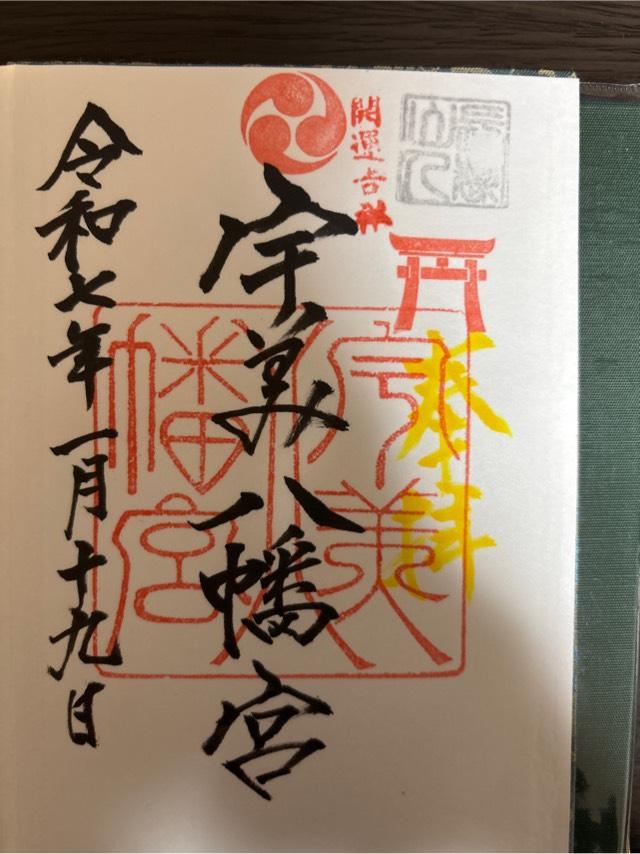 開運吉祥
奉拝
宇美八幡宮
宇美八幡宮
令和七年一月十九日